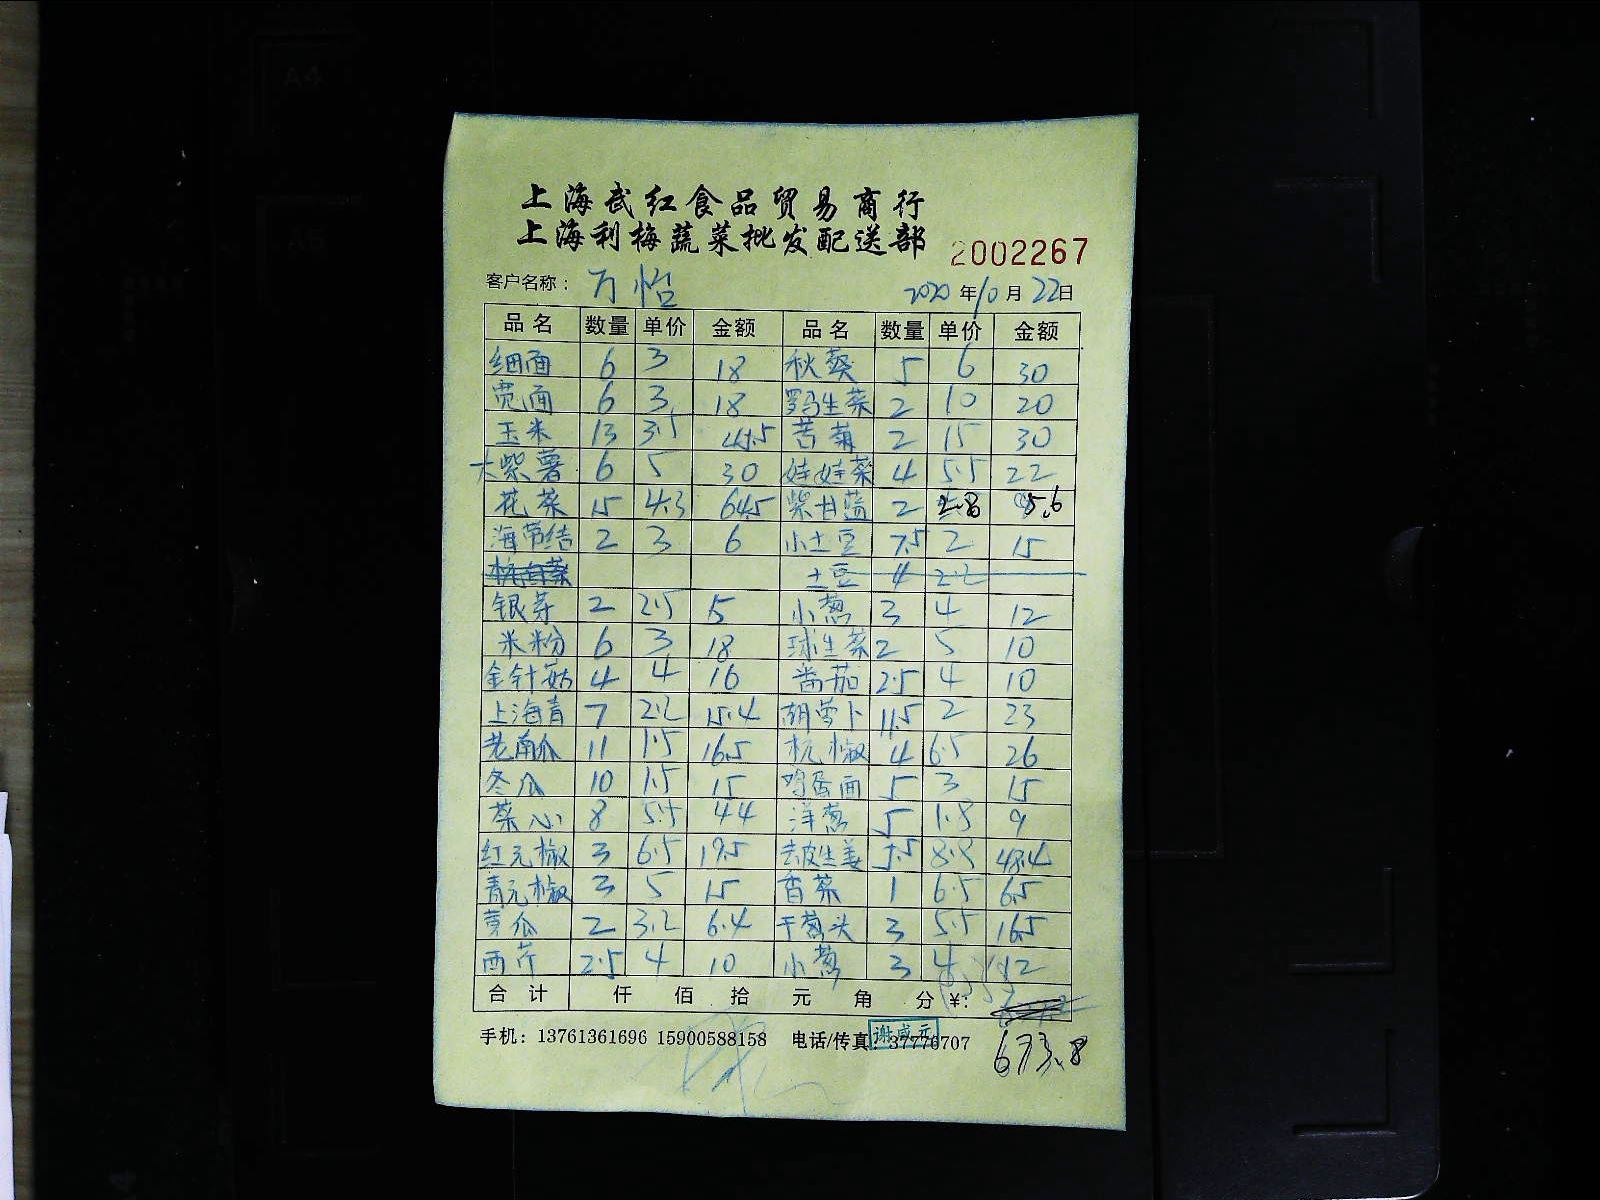 上海武红食品贸易商行
上海利梅蔬菜批发配送部 2002267
客户名称：万怡 2020年10月22日
品名 数量 单价 金额 品名 数量 单价 金额
细面 6 3 18 秋葵 5 6 30
宽面 6 3 18 罗马生菜 2 10 20
玉米 13 3.5 45.5 苦菊 2 15 30
大紫薯 6 5 30 娃娃菜 4 5.5 22
花菜 15 4.3 64.5 紫甘蓝 2 2.8 5.6
海带结 2 3 6 小土豆 7.5 2 15
土豆 4 2.2
银芽 2 2.5 5 小葱 3 4 12
米粉 6 3 18 球生菜 2 5 10
金针菇 4 4 16 番茄 2.5 4 10
上海青 7 2.2 15.4 胡萝卜 11.5 2 23
老南瓜 11 1.5 16.5 杭椒 4 6.5 26
冬瓜 10 1.5 15 鸡蛋面 5 3 15
菜心 8 5.5 44 洋葱 5 1.8 9
红元椒 3 6.5 19.5 去皮生姜 5.5 8.8 48.4
青元椒 3 5 15 香菜 1 6.5 6.5
黄瓜 2 3.2 6.4 干葱头 3 5.5 16.5
西芹 2.5 4 10 小葱 3 4 12
合计 仟 佰 拾 元 角 分 ¥：
手机：13761361696 15900588158 电话/传真：37776707
谢咸元
673.8